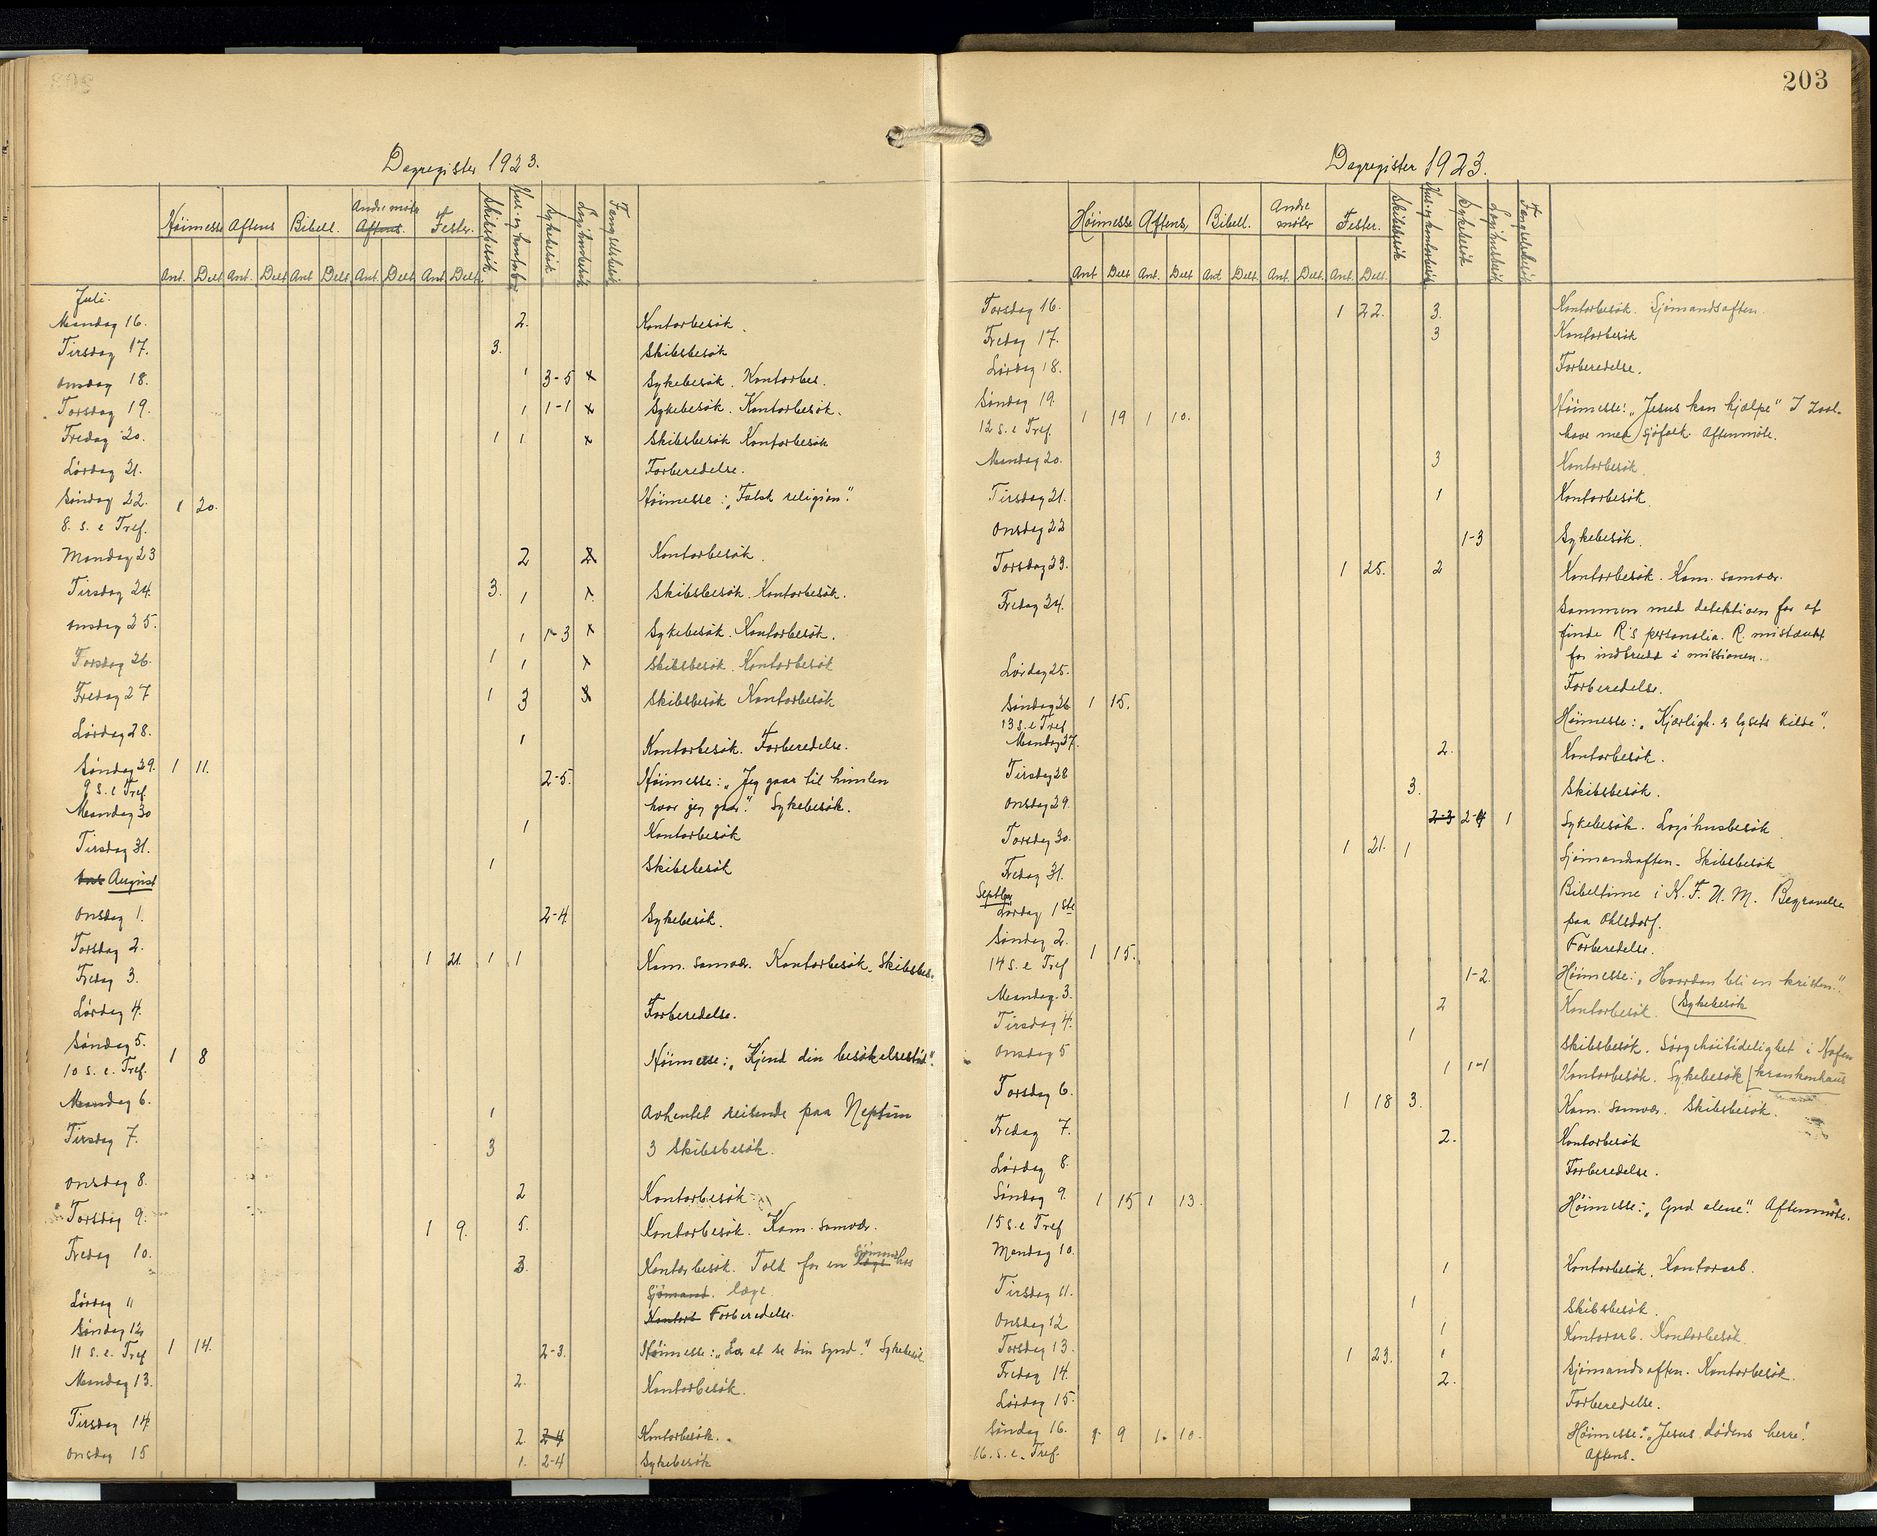 Dagregister 1923.
Høimesse Aftens Bibell. Andre møter Aftens. Fester. Skibsbesøk Hus- og kontorbes. Sykebesøk Logihusbesøk Fængselsbesøk
Ant. Delt. Ant. Delt. Ant. Delt. Ant. Delt. Ant. Delt.
Juli.
Mandag 16. 2. Kontorbesøk.
Tirsdag 17. 3. Skibsbesøk
Onsdag 18. 1 3-5 x Sykebesøk. Kontorbes.
Torsdag 19. 1 1-1 x Sykebesøk. Kontorbesøk.
Fredag 20. 1 1 x Skibsbesøk Kontorbesøk
Lørdag 21. Forberedelse.
Søndag 22. 1 20. Høimesse: „Falsk religion".
8. s. e Tref.
Mandag 23 2 x Kontorbesøk.
Tirsdag 24. 3. 1 x Skibsbesøk. Kontorbesøk.
Onsdag 25. 1 1-3 x Sykebesøk. Kontorbesøk.
Torsdag 26. 1 1 x Skibsbesøk. Kontorbesøk
Fredag 27 1 3 x Skibsbesøk Kontorbesøk
Lørdag 28. 1 Kontorbesøk. Forberedelse.
Søndag 29. 1 11. 2-5. Høimesse: „Jeg gaar til himlen
9 s. e Tref. hvor jeg gaar." Sykebesøk.
Mandag 30 1 Kontorbesøk
Tirsdag 31. 1 Skibsbesøk
Ons August
Onsdag 1. 2-4 Sykebesøk.
Torsdag 2. 1 21. 1 1 Kam. samvær. Kontorbesøk. Skibsbes.
Fredag 3.
Lørdag 4. Forberedelse.
Søndag 5. 1 8 Høimesse: „Kjend din besøkelsestid".
10 s. e. Tref.
Mandag 6. 1 Avhentet reisende paa Neptun
Tirsdag 7. 3 3 Skibsbesøk.
Onsdag 8. 2 Kontorbesøk
Torsdag 9. 1 9. 5. Kontorbesøk. Kam. samvær.
Fredag 10. 3. Kontorbesøk. Tolk for en læge sjømand hos
sjømand. læge.
Lørdag 11 Kontorb Forberedelse.
Søndag 12
11 s. e. Tref 1 14. 2-3. Høimesse: „Lær at se din synd." Sykebesøk
Mandag 13. 2. Kontorbesøk.
Tirsdag 14. 2. 2-4 Kontorbesøk.
Onsdag 15 1. 2-4 Sykebesøk
203
Dagregister 1923.
Høimesse Aftens. Bibell. Andre møter Fester. Skibsbesøk Hus- og kontorbesøk Sykebesøk Logihusbesøk Fængselsbesøk
Ant Delt Ant. Delt Ant Delt. Ant Delt. Ant. Delt.
Torsdag 16. 1 22. 3. Kontorbesøk. Sjømandsaften.
Fredag 17. 3 Kontorbesøk
Lørdag 18. Forberedelse.
Søndag 19. 1 19 1 10. Høimesse: „Jesus kan hjælpe" I zool.
12 s. e Tref. have med sjøfolk. Aftenmøte.
Mandag 20. 3 Kontorbesøk.
Tirsdag 21. 1 Kontorbesøk.
Onsdag 22 1-3 Sykebesøk.
Torsdag 23. 1 25. 2 Kontorbesøk. Kam. samvær.
Fredag 24. Sammen med detektiven for at
finde R's personalia. R. mistænkt
for indbrudd i missionen.
Lørdag 25. Forberedelse.
Søndag 26 1 15. Høimesse: „Kjærligh. er lysets kilde".
13 s. e Tref
Mandag 27. 2. Kontorbesøk.
Tirsdag 28 3. Skibsbesøk.
Onsdag 29. 2-3 2-4 1 Sykebesøk. Logihusbesøk
Torsdag 30. 1 21. 1 Sjømandsaften. Skibsbesøk
Fredag 31. Bibeltime i K.F.U.M. Begravelse
paa Ohlsdorf.
Septbr
Lørdag 1ste Forberedelse.
Søndag 2. 1 15. 1-2. Høimesse: „Hvordan bli en kristen".
14 s. e Tref (Sykebesøk
Mandag. 3. 2 Kontorbesøk.
Tirsdag 4. 1 Skibsbesøk. Sørgehøitidelighet i Hafen
Onsdag 5 1 1-1 Kontorbesøk. Sykebesøk [krankenhaus
Torsdag 6. 1 18 3. Kam. samvær. Skibsbesøk.
Fredag 7. 2. Kontorbesøk
Lørdag 8. Forberedelse.
Søndag 9. 1 15 1 13. Høimesse: „Gud alene". Aftenmøte.
15 s. e Tref
Mandag 10. 1 Kontorbesøk. Kontorarb.
Tirsdag 11. 1 Skibsbesøk.
Onsdag 12 1 Kontorarb. Kontorbesøk
Torsdag 13. 1 23. 1 Sjømandsaften. Kontorbesøk.
Fredag 14. 2.
Lørdag 15. Forberedelse.
Søndag 16. 1 9 1. 10. Høimesse: „Jesus dødens herre!
16. s. e. Tref. Aftens.